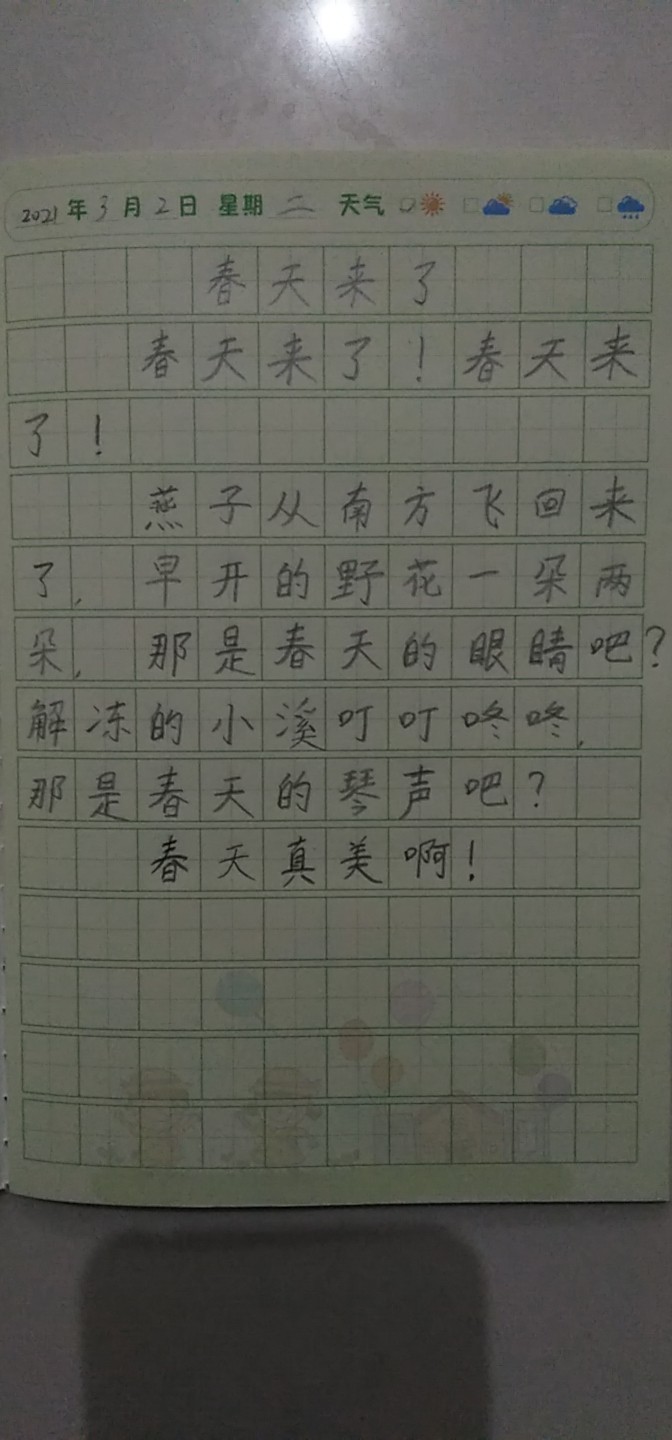 2021年3月2日 星期二 天气
春天来了
春天来了！春天来
了！
燕子从南方飞回来
了，早开的野花一朵两
朵，那是春天的眼睛吧？
解冻的小溪叮叮咚咚，
那是春天的琴声吧？
春天真美啊！